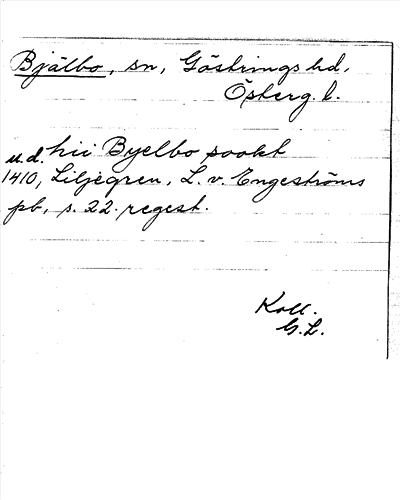 Bjälbo, sn, Göstrings hd,
Österg. l.
u.d. hii Byelbo sookt
1410, Liljegren, L. v. Engeströms
pb, s. 22. regest.
Koll.
G.L.